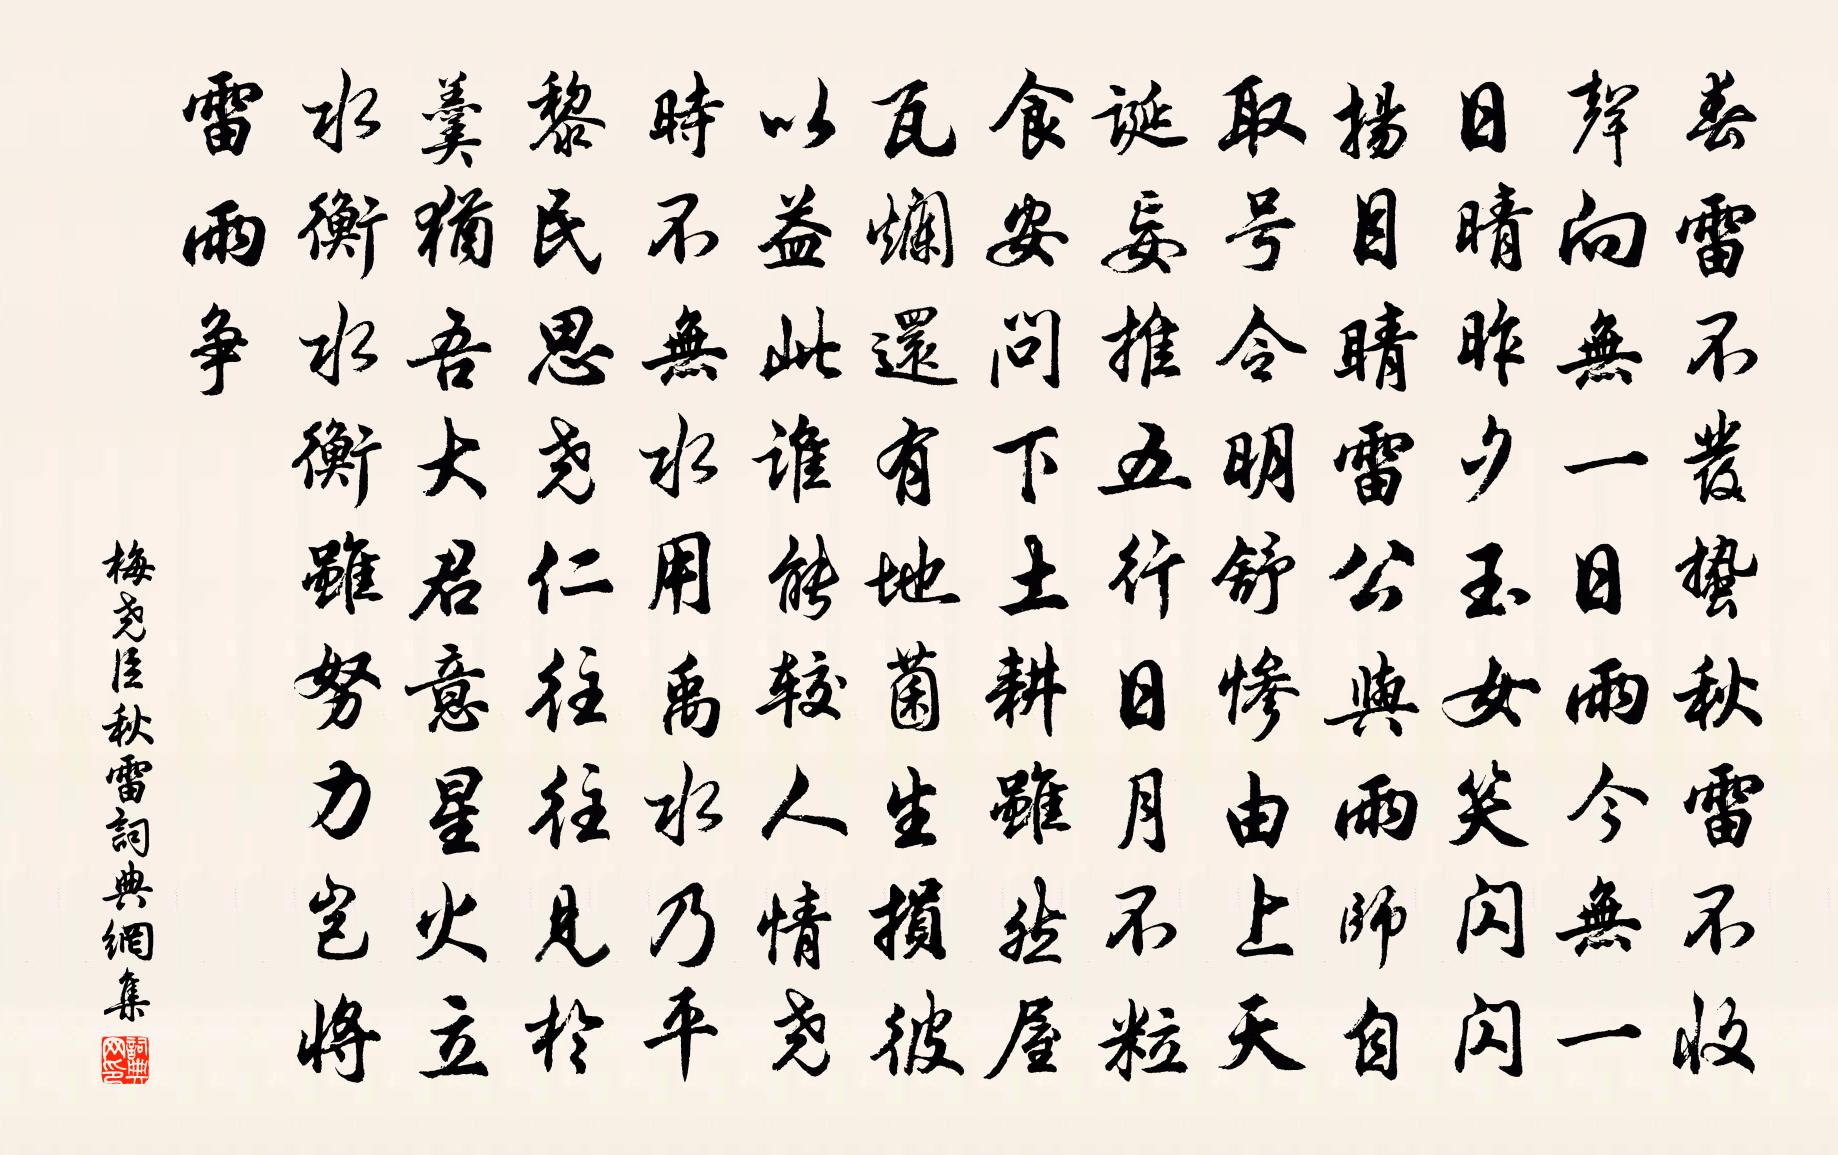 春雷不發蟄秋雷不收
聲向無一日雨今無一
日晴昨夕玉女笑閃閃
揚目睛雷公與雨師自
取号令明舒慘由上天
誕妄推五行日月不粒
食安問下土耕雖然屋
瓦爛還有地菌生損彼
以益此誰能較人情堯
時不無水用禹水乃平
黎民思堯仁往往見於
羹猶吾大君意星火立
水衡水衡雖努力豈將
雷雨爭
梅堯臣秋雷詞典網集
詞典网印